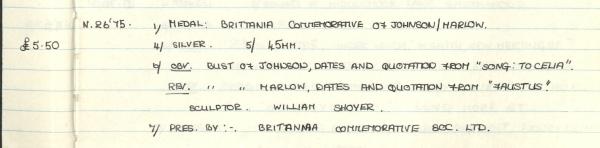 N.26'75. 1/ MEDAL: BRITTANIA COMMEMORATIVE OF JOHNSON/MARLOW.
£5.50 4/ SILVER. 5/ 45MM.
6/ OBV. BUST OF JOHNSON, DATES AND QUOTATION FROM "SONG: TO CELIA".
REV. " " MARLOW, DATES AND QUOTATION FROM "FAUSTUS".
SCULPTOR. WILLIAM SHOYER.
7/ PRES. BY:-. BRITANNIA COMMEMORATIVE SOC. LTD.